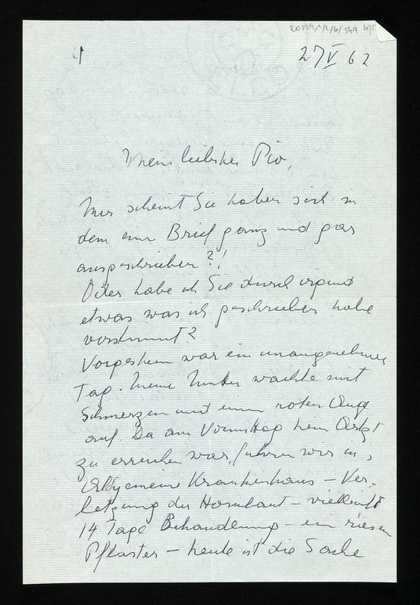 27 V 62
Mein liebster Pio,
Mir scheint Sie haben sich in
dem einen Brief ganz und gar
ausgeschrieben?!
Oder habe ich Sie durch irgend
etwas was ich geschrieben habe
verstimmt?
Vorgestern war ein unangenehmer
Tag. Meine Mutter wachte mit
Schmerzen und einem roten Auge
auf. Da am Vormittag kein Arzt
zu erreichen war, fuhren wir ins
Allgemeine Krankenhaus – Ver-
letzung der Hornhaut – vielleicht
14 Tage Behandlung – ein riesen
Pflaster – heute ist die Sache